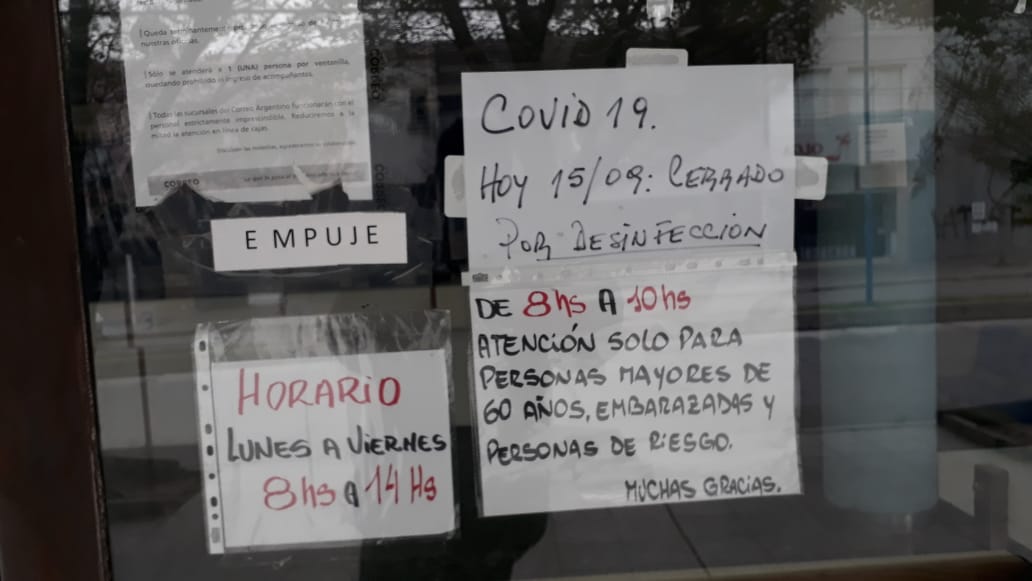 Queda terminantemente
nuestras oficinas.
Sólo se atenderá a 1 (UNA) persona por ventanilla,
quedando prohibido el ingreso de acompañantes.
Todas las sucursales del Correo Argentino funcionarán con el
personal estrictamente imprescindible. Reduciremos a la
mitad la atención en línea de cajas.
CORREO
EMPUJE
HORARIO
LUNES A VIERNES
8hs A 14 Hs
COVID 19.
HOY 15/09: CERRADO
POR DESINFECCIÓN
DE 8hs A 10hs
ATENCIÓN SOLO PARA
PERSONAS MAYORES DE
60 AÑOS, EMBARAZADAS Y
PERSONAS DE RIESGO.
MUCHAS GRACIAS.